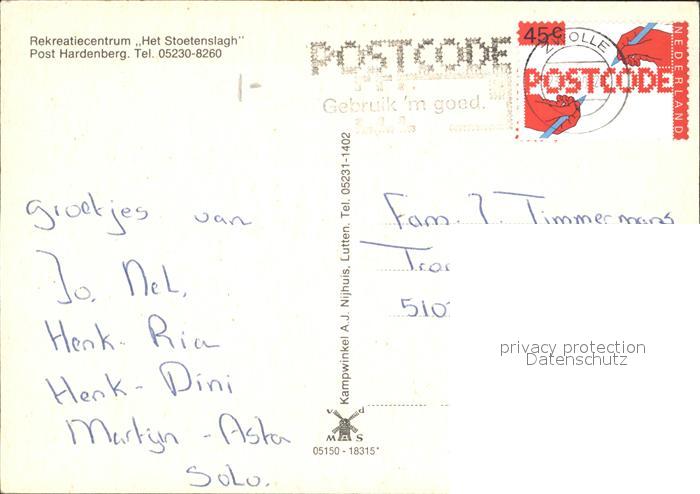 Rekreatiecentrum „Het Stoetenslagh"
Post Hardenberg. Tel. 05230-8260
POSTCODE
Gebruik 'm goed.
ZWOLLE
45c
POSTCODE
NEDERLAND
groetjes van
Jo, Nel,
Henk - Ria
Henk - Dini
Martijn - Asta
Kampwinkel A.J. Nijhuis, Lutten. Tel. 05231-1402
v d
MAS
05150 - 18315*
Fam. J. Timmermans
510
privacy protection
Datenschutz